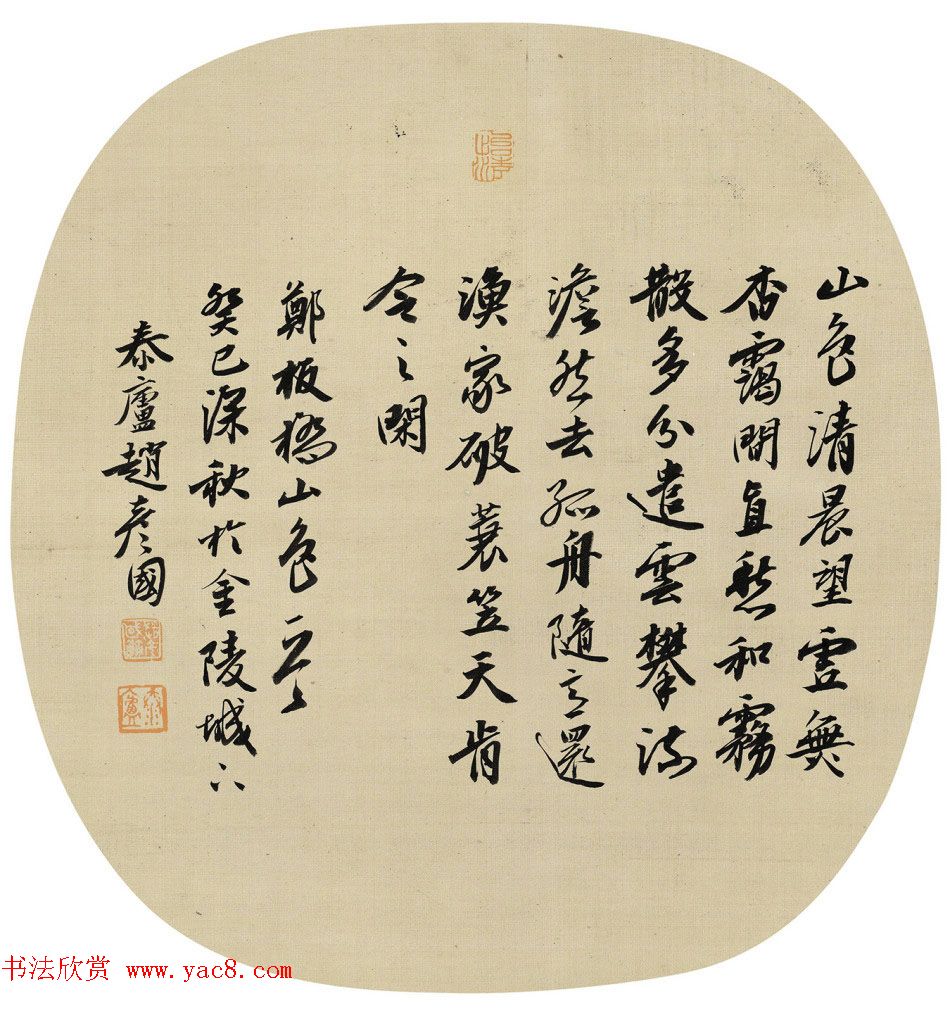 山色清晨望虛無
杳靄間直愁和霧
散多分遣雲攀流
澹然去孤舟隨意還
漁家破蓑笠天肯
令之閑
鄭板橋山色一首
癸巳深秋於金陵城下
泰廬趙彥國
泰廬
书法欣赏 www.yac8.com